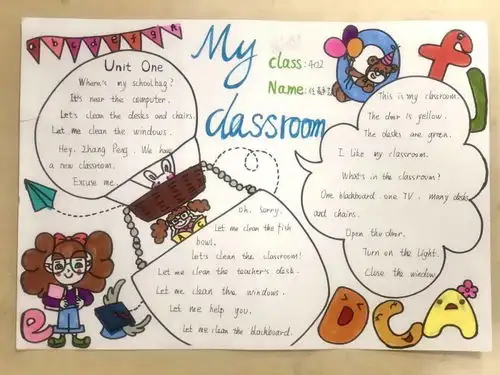 a b c d e f g h
Unit One
Where's my schoolbag?
It's near the computer.
Let's clean the desks and chairs.
Let me clean the windows.
Hey, Zhang Peng. We have
a new classroom.
Excuse me.
My
classroom
class: 402
Name:
This is my classroom.
The door is yellow.
The desks are green.
I like my classroom.
What's in the classroom?
One blackboard. one TV. many desks
and chairs.
Open the door.
Turn on the light.
Close the window.
Oh, Sorry.
Let me clean the fish
bowl.
Let's clean the classroom!
Let me clean the teacher's desk.
Let me clean the windows.
Let me help you.
Let me clean the blackboard.
f
e
D C A